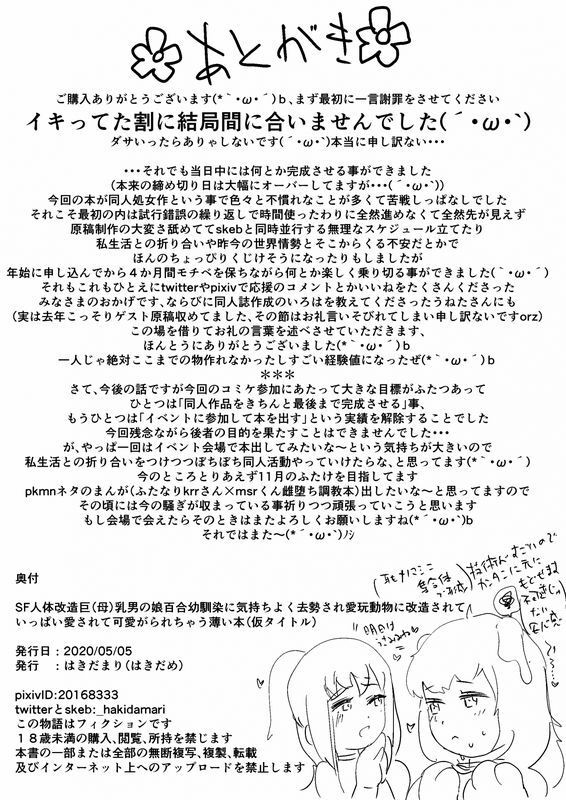 あとがき
ご購入ありがとうございます(*｀・ω・´)ｂ、まず最初に一言謝罪をさせてください
イキってた割に結局間に合いませんでした(´・ω・`)
ダサいったらありゃしないです(´・ω・`)本当に申し訳ない・・・
・・・それでも当日中には何とか完成させる事ができました
(本来の締め切り日は大幅にオーバーしてますが・・・(´・ω・`))
今回の本が同人処女作という事で色々と不慣れなことが多くて苦戦しっぱなしでした
それこそ最初の内は試行錯誤の繰り返しで時間使ったわりに全然進めなくて全然先が見えず
原稿制作の大変さ舐めててskebと同時並行する無理なスケジュール立てたり
私生活との折り合いや昨今の世界情勢とそこからくる不安だとかで
ほんのちょっぴりくじけそうになったりもしましたが
年始に申し込んでから４か月間モチベを保ちながら何とか楽しく乗り切る事ができました(｀・ω・´)
それもこれもひとえにtwitterやpixivで応援のコメントとかいいねをたくさんくださった
みなさまのおかげです、ならびに同人誌作成のいろはを教えてくださったうねたさんにも
(実は去年こっそりゲスト原稿収めてました、その節はお礼言いそびれてしまい申し訳ないですorz)
この場を借りてお礼の言葉を述べさせていただきます、
ほんとうにありがとうございました(*｀・ω・´)ｂ
一人じゃ絶対ここまでの物作れなかったしすごい経験値になったぜ(*｀・ω・´)ｂ
＊＊＊
さて、今後の話ですが今回のコミケ参加にあたって大きな目標がふたつあって
ひとつは「同人作品をきちんと最後まで完成させる」事、
もうひとつは「イベントに参加して本を出す」という実績を解除することでした
今回残念ながら後者の目的を果たすことはできませんでした・・・
が、やっぱ一回はイベント会場で本出してみたいな〜という気持ちが大きいので
私生活との折り合いをつけつつぼちぼち同人活動やっていけたらな、と思ってます(*｀・ω・´)
今のところとりあえず11月のふたけを目指してます
pkmnネタのまんが(ふたなりkrrさん×msrくん雌堕ち調教本)出したいな〜と思ってますので
その頃には今の騒ぎが収まっている事祈りつつ頑張っていこうと思います
もし会場で会えたらそのときはまたよろしくお願いしますね(*´・ω・`)b
それではまた〜(*´・ω・`)ﾉｼ
奥付
SF人体改造巨(母)乳男の娘百合幼馴染に気持ちよく去勢され愛玩動物に改造されて
いっぱい愛されて可愛がられちゃう薄い本(仮タイトル)
発行日：2020/05/05
発行　：はきだまり(はきだめ)
pixivID:20168333
twitterとskeb:_hakidamari
この物語はフィクションです
１８歳未満の購入、閲覧、所持を禁じます
本書の一部または全部の無断複写、複製、転載
及びインターネット上へのアップロードを禁止します